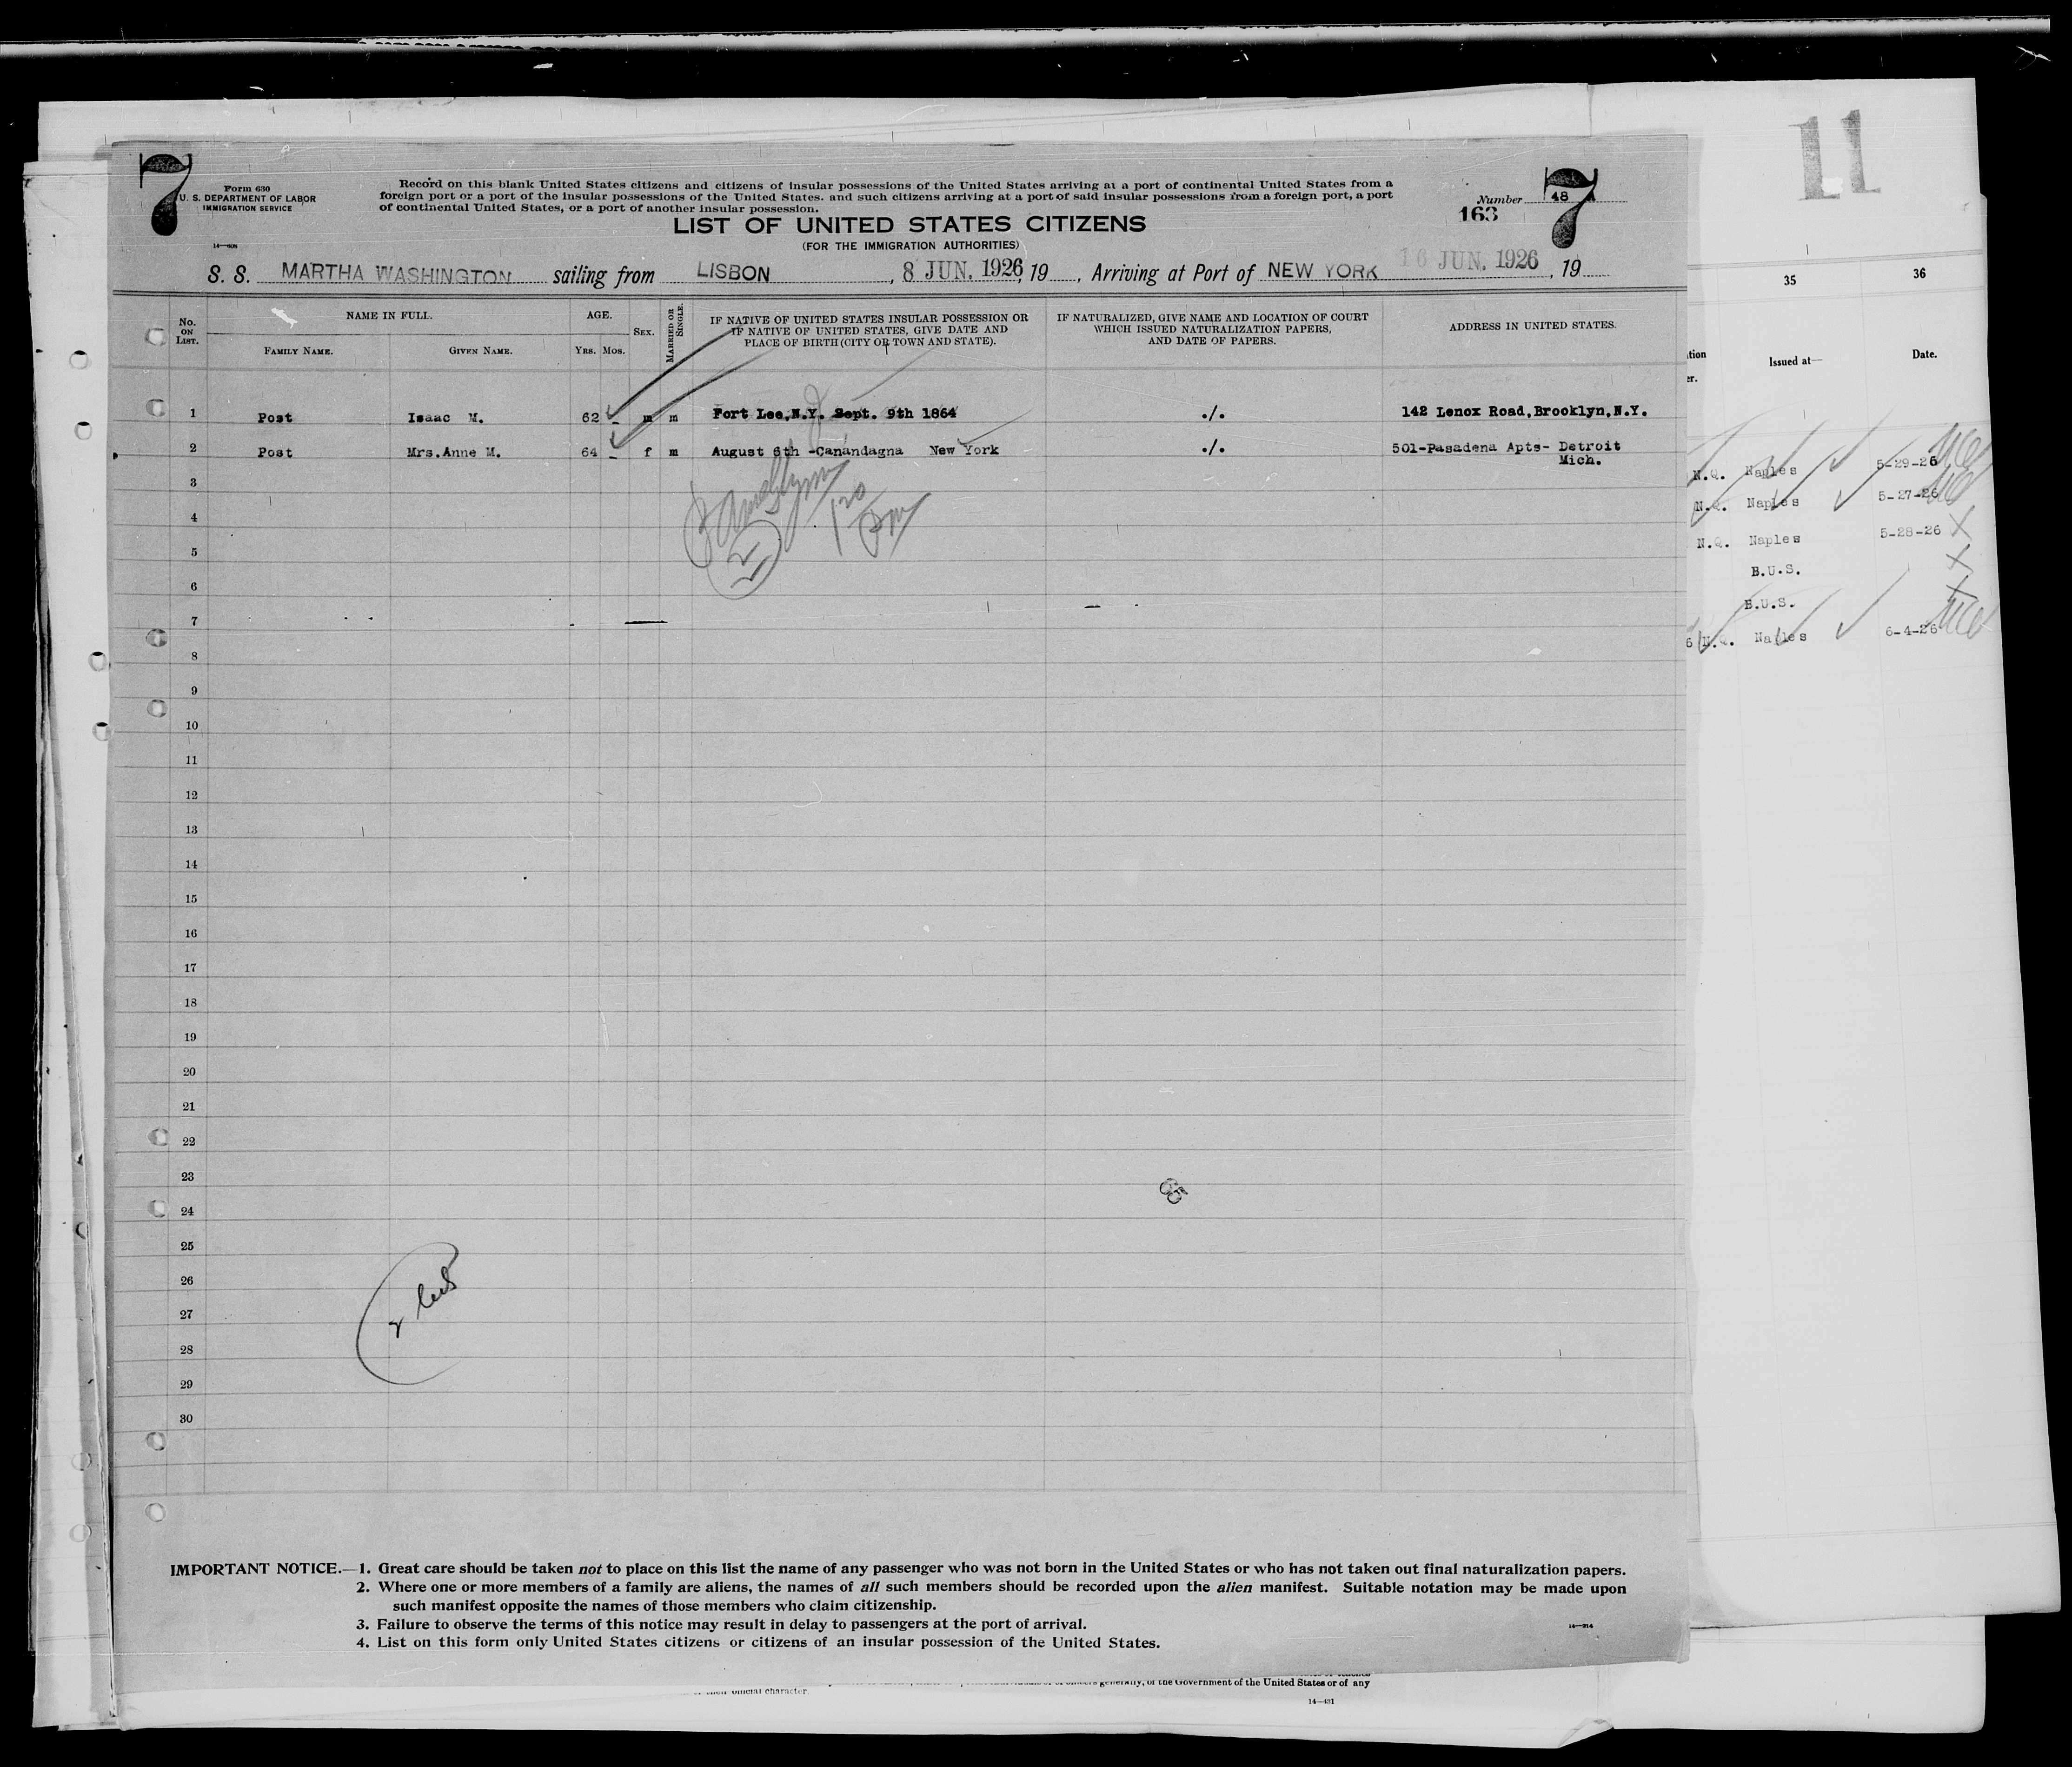 11
7
Form 630
U. S. DEPARTMENT OF LABOR
IMMIGRATION SERVICE
14—608
Record on this blank United States citizens and citizens of insular possessions of the United States arriving at a port of continental United States from a
foreign port or a port of the insular possessions of the United States. and such citizens arriving at a port of said insular possessions from a foreign port, a port
of continental United States, or a port of another insular possession.
Number 48
7
163
LIST OF UNITED STATES CITIZENS
(FOR THE IMMIGRATION AUTHORITIES)
S. S. MARTHA WASHINGTON sailing from LISBON, 8 JUN. 1926, 19, Arriving at Port of NEW YORK 16 JUN. 1926, 19
No. ON LIST.
NAME IN FULL.
FAMILY NAME.
GIVEN NAME.
AGE.
YRS. MOS.
SEX.
MARRIED OR SINGLE.
IF NATIVE OF UNITED STATES INSULAR POSSESSION OR
IF NATIVE OF UNITED STATES, GIVE DATE AND
PLACE OF BIRTH (CITY OR TOWN AND STATE).
IF NATURALIZED, GIVE NAME AND LOCATION OF COURT
WHICH ISSUED NATURALIZATION PAPERS,
AND DATE OF PAPERS.
ADDRESS IN UNITED STATES.
1 Post Isaac M. 62 m m Fort Lee,N.Y. Sept. 9th 1864 ./. 142 Lenox Road,Brooklyn,N.Y.
2 Post Mrs.Anne M. 64 – f m August 6th -Canandagna New York ./. 501-Pasadena Apts- Detroit
Mich.
3
4
5
6
7
8
9
10
11
12
13
14
15
16
17
18
19
20
21
22
23
24
25
26
27
28
29
30
2
120
65
2
IMPORTANT NOTICE.—1. Great care should be taken not to place on this list the name of any passenger who was not born in the United States or who has not taken out final naturalization papers.
2. Where one or more members of a family are aliens, the names of all such members should be recorded upon the alien manifest. Suitable notation may be made upon
such manifest opposite the names of those members who claim citizenship.
3. Failure to observe the terms of this notice may result in delay to passengers at the port of arrival.
4. List on this form only United States citizens or citizens of an insular possession of the United States.
14—914
35
36
Issued at—
Date.
N.Q. Naples 5-29-26
N.Q. Naples 5-27-26
N.Q. Naples 5-28-26
B.U.S.
B.U.S.
6 N.Q. Naples 6-4-26
official character.
generally, of the Government of the United States or of any
14—431